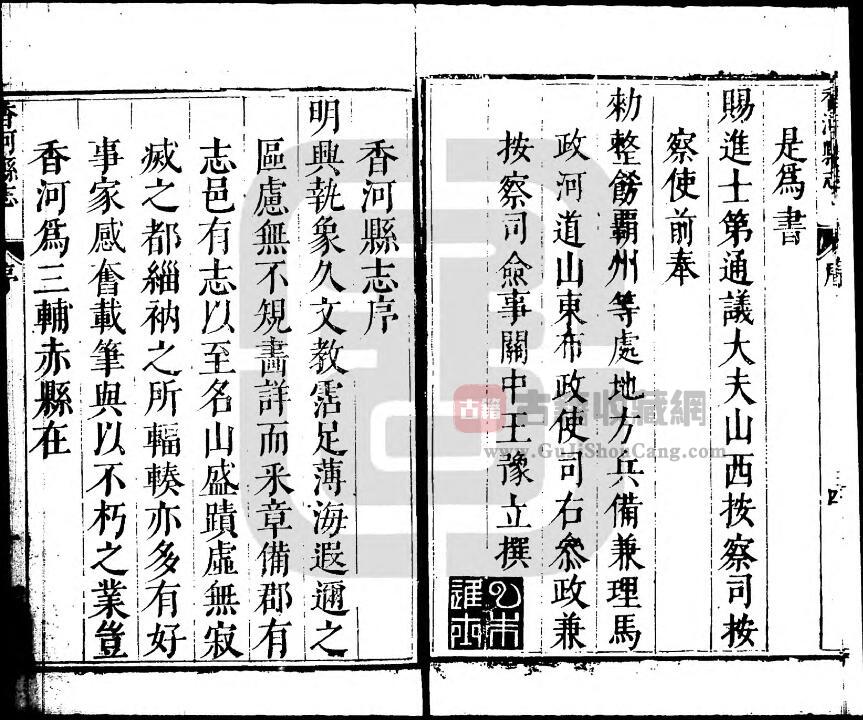 香河縣志
序
四
是為書
賜進士第通議大夫山西按察司按
察使前奉
勑整飭霸州等處地方兵備兼理馬
政河道山東布政使司右叅政兼
按察司僉事關中王豫立撰
香河縣志序
明興執象久文教霑足薄海遐邇之
區慮無不規畵詳而釆章備郡有
志邑有志以至名山盛蹟虛無寂
烕之都緇衲之所輻輳亦多有好
事家感奮載筆與以不朽之業豈
香河爲三輔赤縣在
香河縣志
序
古籍
古籍收藏網
www.GuJiShouCang.com